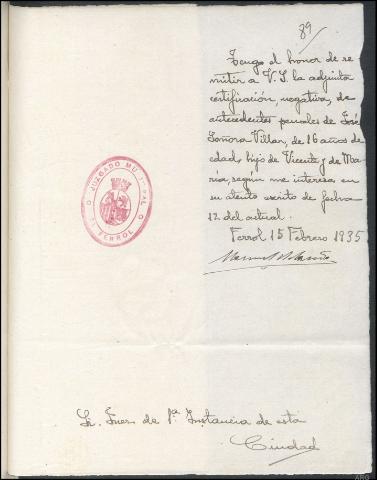 89
Tengo el honor de re-
mitir a V. S. la adjunta
certificación, negativa, de
antecedentes penales de José
Sonora Villar, de 16 años de
edad, hijo de Vicente y de Ma-
ría, según me interesa en
su atento escrito de fecha
12 del actual.
Ferrol 15 Febrero 1935
JUZGADO MUNICIPAL
FERROL
Sr. Juez de 1ª Instancia de esta
Ciudad
ARG